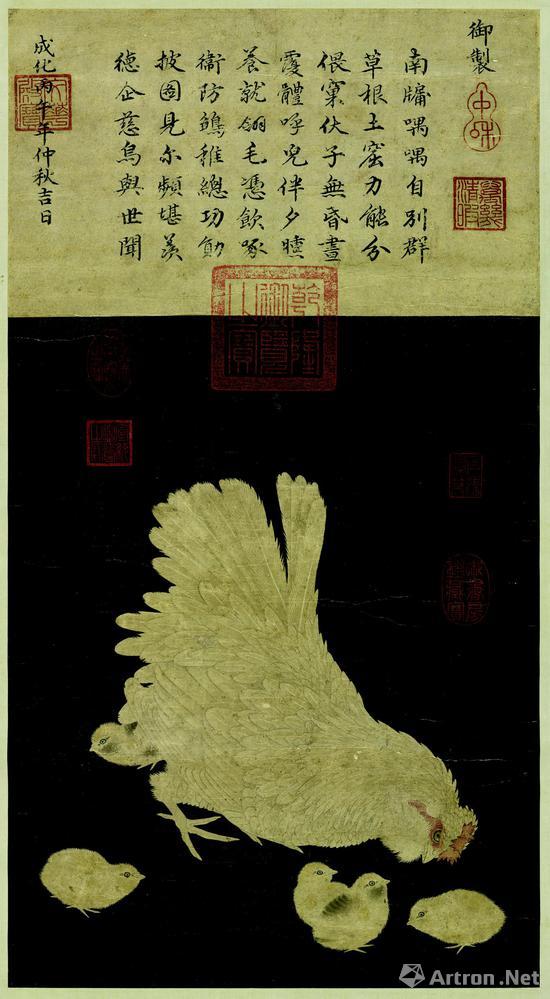 御製
南牖喁喁自別群
草根土窟力能分
偎窠伏子無昏晝
覆體呼兒伴夕曛
養就翎毛憑飲啄
衛防鶵稚總功勛
披圖見尔頻堪羨
德企慈烏與世聞
成化丙午年仲秋吉日
乾隆
御覽
之寶
Artron.Net